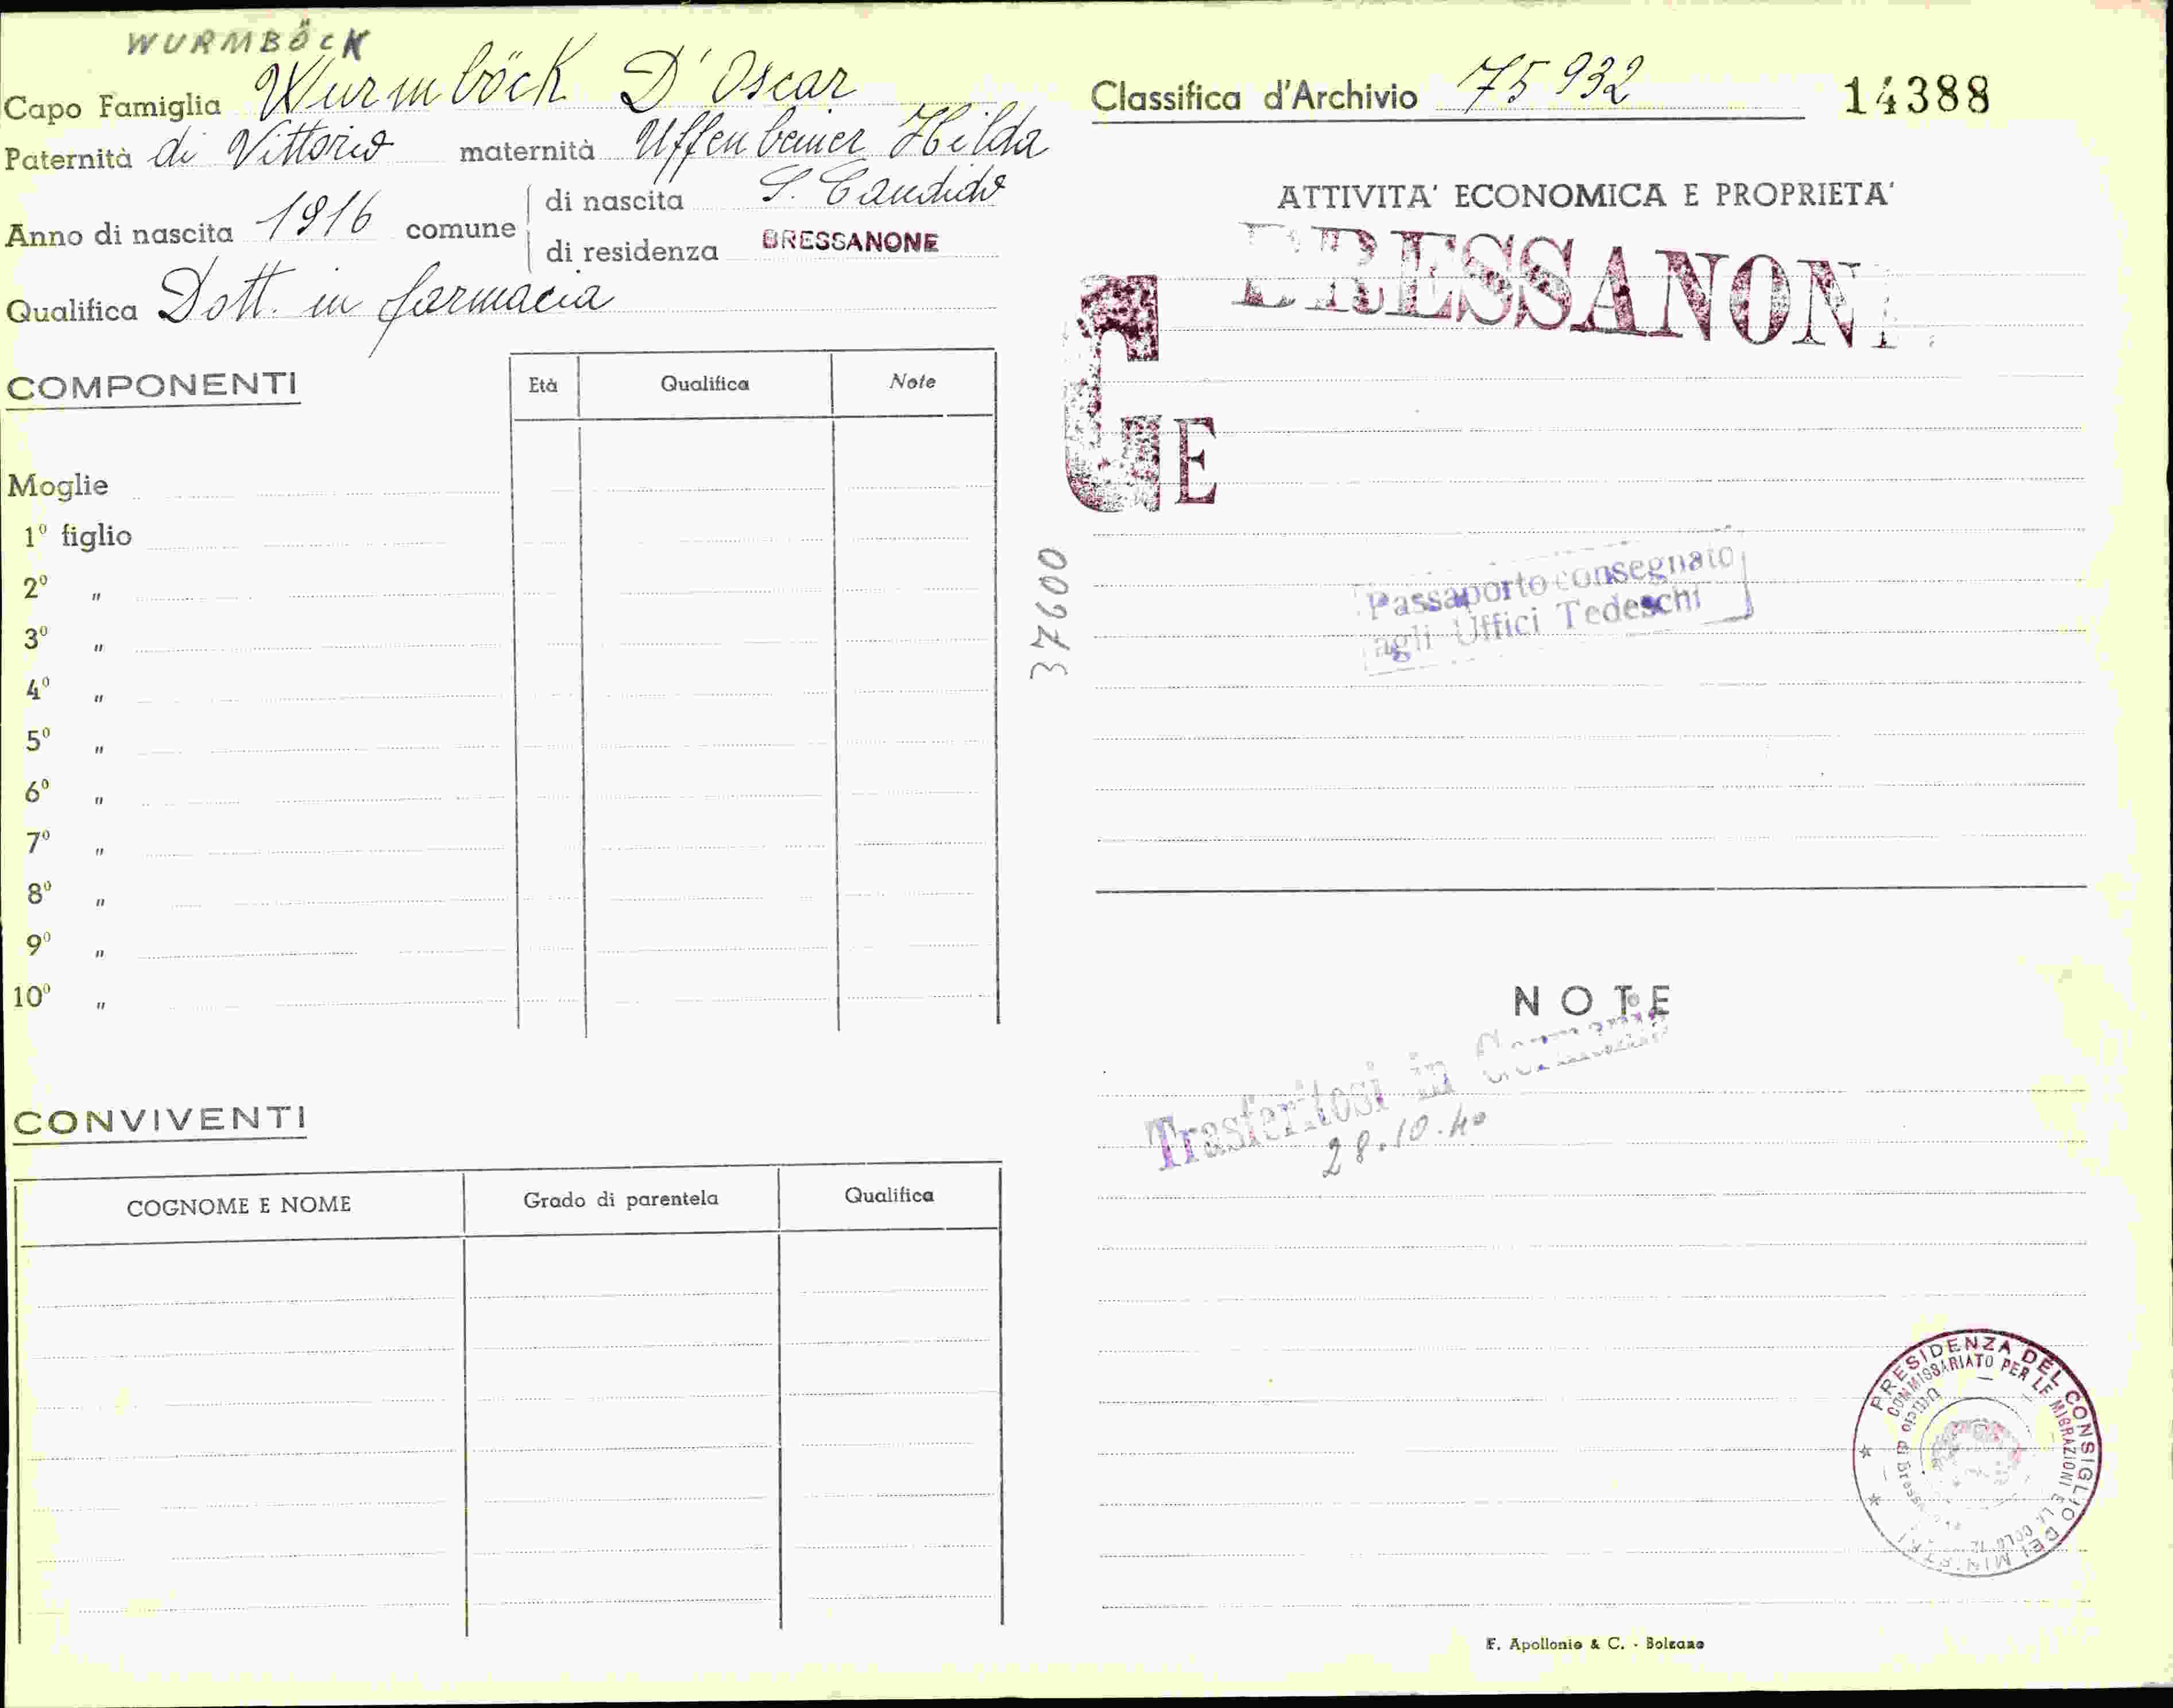 WURMBÖCK
Capo Famiglia Wurmböck D' Oscar
Paternità di Vittorio maternità Uffenbeiner Hilda
Anno di nascita 1916 comune
di nascita S. Candido
di residenza BRESSANONE
Qualifica Dott. in farmacia
COMPONENTI
Età Qualifica Note
Moglie
1º figlio
2º "
3º "
4º "
5º "
6º "
7º "
8º "
9º "
10º "
CONVIVENTI
COGNOME E NOME Grado di parentela Qualifica
37600
Classifica d'Archivio 75932 14388
ATTIVITA' ECONOMICA E PROPRIETA'
BRESSANON
G E
Passaporto consegnato
agli Uffici Tedeschi
NOTE
Trasferitosi in Germania
28.10.40
PRESIDENZA DEL CONSIGLIO DEI MINISTRI
COMMISSARIATO PER LE MIGRAZIONI E LA
Ufficio di
F. Apollonio & C. - Bolzano